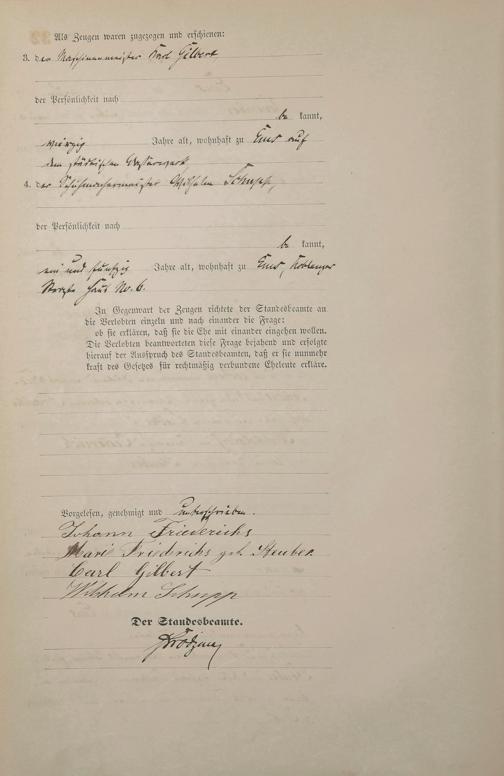 Als Zeugen waren zugezogen und erschienen:
3. der Maschinenmeister Carl Gilbert,
der Persönlichkeit nach
be kannt,
vierzig Jahre alt, wohnhaft zu Ems auf
dem städtischen Wasserwerk
4. der Schuhmachermeister Wilhelm Schupp,
der Persönlichkeit nach
be kannt,
ein und fünfzig Jahre alt, wohnhaft zu Ems, Koblenzer
Straße Haus No. 6.
In Gegenwart der Zeugen richtete der Standesbeamte an
die Verlobten einzeln und nach einander die Frage:
ob sie erklären, daß sie die Ehe mit einander eingehen wollen.
Die Verlobten beantworteten diese Frage bejahend und erfolgte
hierauf der Ausspruch des Standesbeamten, daß er sie nunmehr
kraft des Gesetzes für rechtmäßig verbundene Eheleute erkläre.
Vorgelesen, genehmigt und unterschrieben.
Johann Friederichs
Marie Friedrichs geb. Steuber
Carl Gilbert
Wilhelm Schupp
Der Standesbeamte.